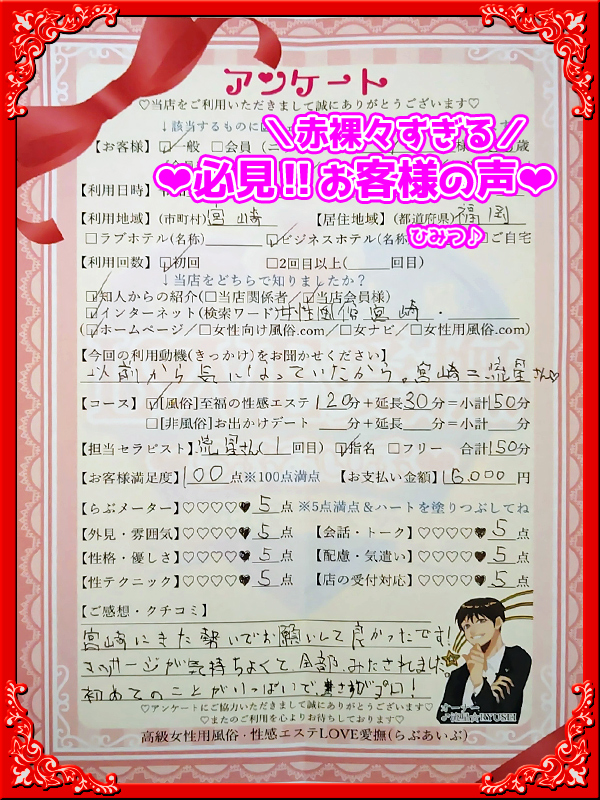 アンケート
♡当店をご利用いただきまして誠にありがとうございます♡
↓該当するものに
\赤裸々すぎる/
【お客様】☑一般 □会員
歳
❤必見!!お客様の声❤
【利用日時】
【利用地域】(市町村)宮崎 【居住地域】(都道府県)福岡
□ラブホテル(名称) ☑ビジネスホテル(名称 □ご自宅
ひみつ♪
【利用回数】☑初回 □2回目以上( 回目)
↓当店をどちらで知りましたか？
☑知人からの紹介(□当店関係者／☑当店会員様)
☑インターネット(検索ワード)女性風俗宮崎・
(☑ホームページ／□女性向け風俗.com／□女ナビ／□女性用風俗.com)
【今回の利用動機(きっかけ)をお聞かせください】
以前から気になっていたから。宮崎＝流星さん♡
【コース】☑[風俗]至福の性感エステ 120分＋延長30分＝小計150分
□[非風俗]お出かけデート 分＋延長 分＝小計 分
【担当セラピスト】流星さん(1回目) ☑指名 □フリー 合計150分
【お客様満足度】100点※100点満点 【お支払い金額】16.000円
【らぶメーター】♡♡♡♡♥ 5点 ※5点満点＆ハートを塗りつぶしてね
【外見・雰囲気】♡♡♡♡♥ 5点 【会話・トーク】♡♡♡♡♥ 5点
【性格・優しさ】♡♡♡♡♥ 5点 【配慮・気遣い】♡♡♡♡♥ 5点
【性テクニック】♡♡♡♡♥ 5点 【店の受付対応】♡♡♡♡♥ 5点
【ご感想・クチコミ】
宮崎にきた勢いでお願いして良かったです!
マッサージが気持ちよくて、全部、みたされます。
初めてのことがいっぱいで、さすがプロ!
♡アンケートにご協力いただきまして誠にありがとうございます♡
♡またのご利用を心よりお待ちしております♡
オーナー
♂流星☆RYUSEI
高級女性用風俗・性感エステLOVE愛撫(らぶあいぶ)